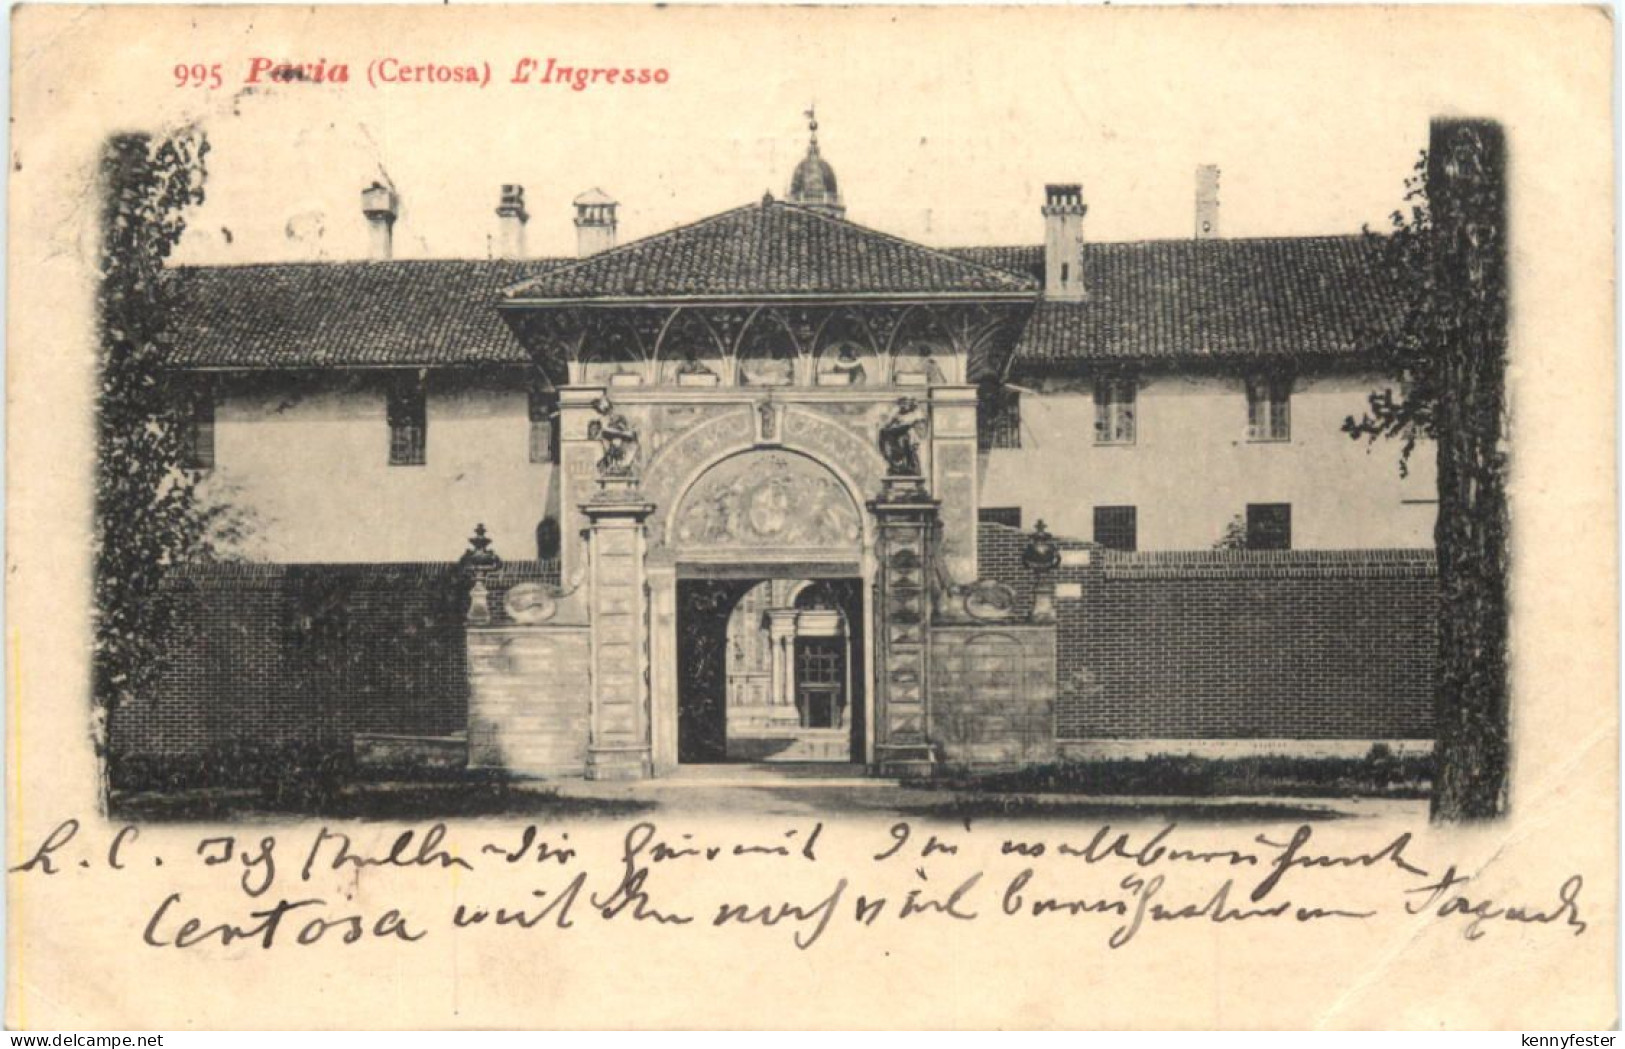 995 Pavia (Certosa) L'Ingresso
L. C. Ich hiermit die weltberühmte
Certosa mit noch viel berühmteren
delcampe.net
kennyfester